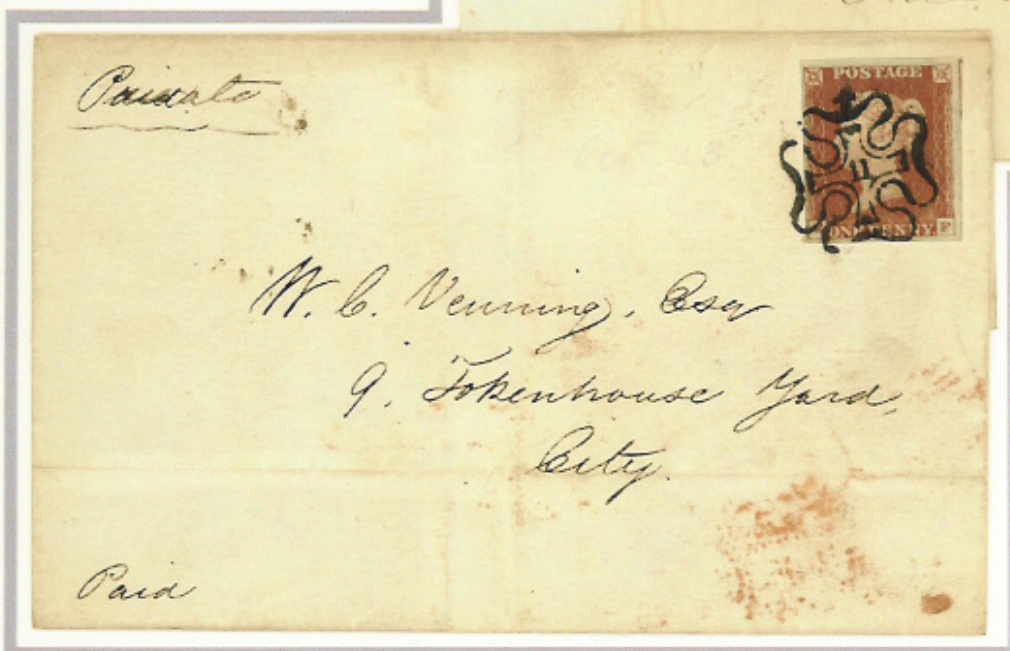 Private
POSTAGE
11
ONE PENNY
F
W. C. Venning, Esq
9. Tokenhouse Yard,
City.
Paid